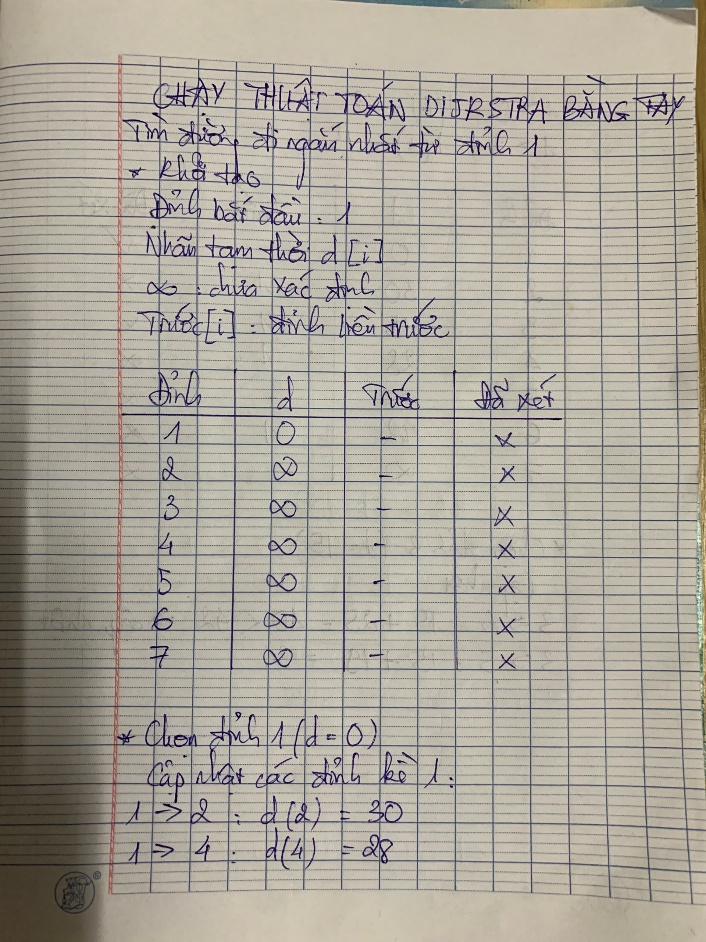 CHẠY THUẬT TOÁN DIJKSTRA BẰNG TAY
Tìm đường đi ngắn nhất từ đỉnh 1
* Khởi tạo
Đỉnh bắt đầu : 1
Nhãn tạm thời d [i]
∞ : chưa xác định
Trước[i] : đỉnh liền trước
Đỉnh d Trước Đã xét
1 0 – x
2 ∞ – x
3 ∞ – x
4 ∞ – x
5 ∞ – x
6 ∞ – x
7 ∞ – x
* Chọn đỉnh 1 (d = 0)
Cập nhật các đỉnh kề 1 :
1 => 2 : d(2) = 30
1 => 4 : d(4) = 28